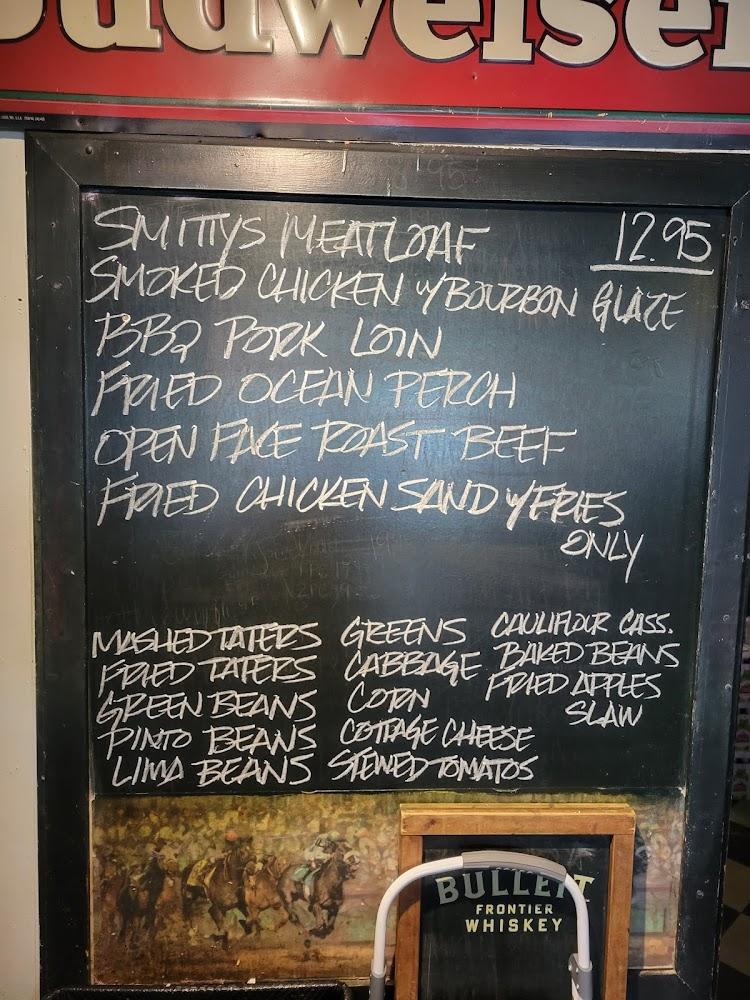 Budweiser
SMITTYS MEATLOAF 12.95
SMOKED CHICKEN W/ BOURBON GLAZE
BBQ PORK LOIN
FRIED OCEAN PERCH
OPEN FACE ROAST BEEF
FRIED CHICKEN SAND W/ FRIES
ONLY
MASHED TATERS
FRIED TATERS
GREEN BEANS
PINTO BEANS
LIMA BEANS
GREENS
CABBAGE
CORN
COTTAGE CHEESE
STEWED TOMATOS
CAULIFLOUR CASS.
BAKED BEANS
FRIED APPLES
SLAW
BULLEIT
FRONTIER
WHISKEY